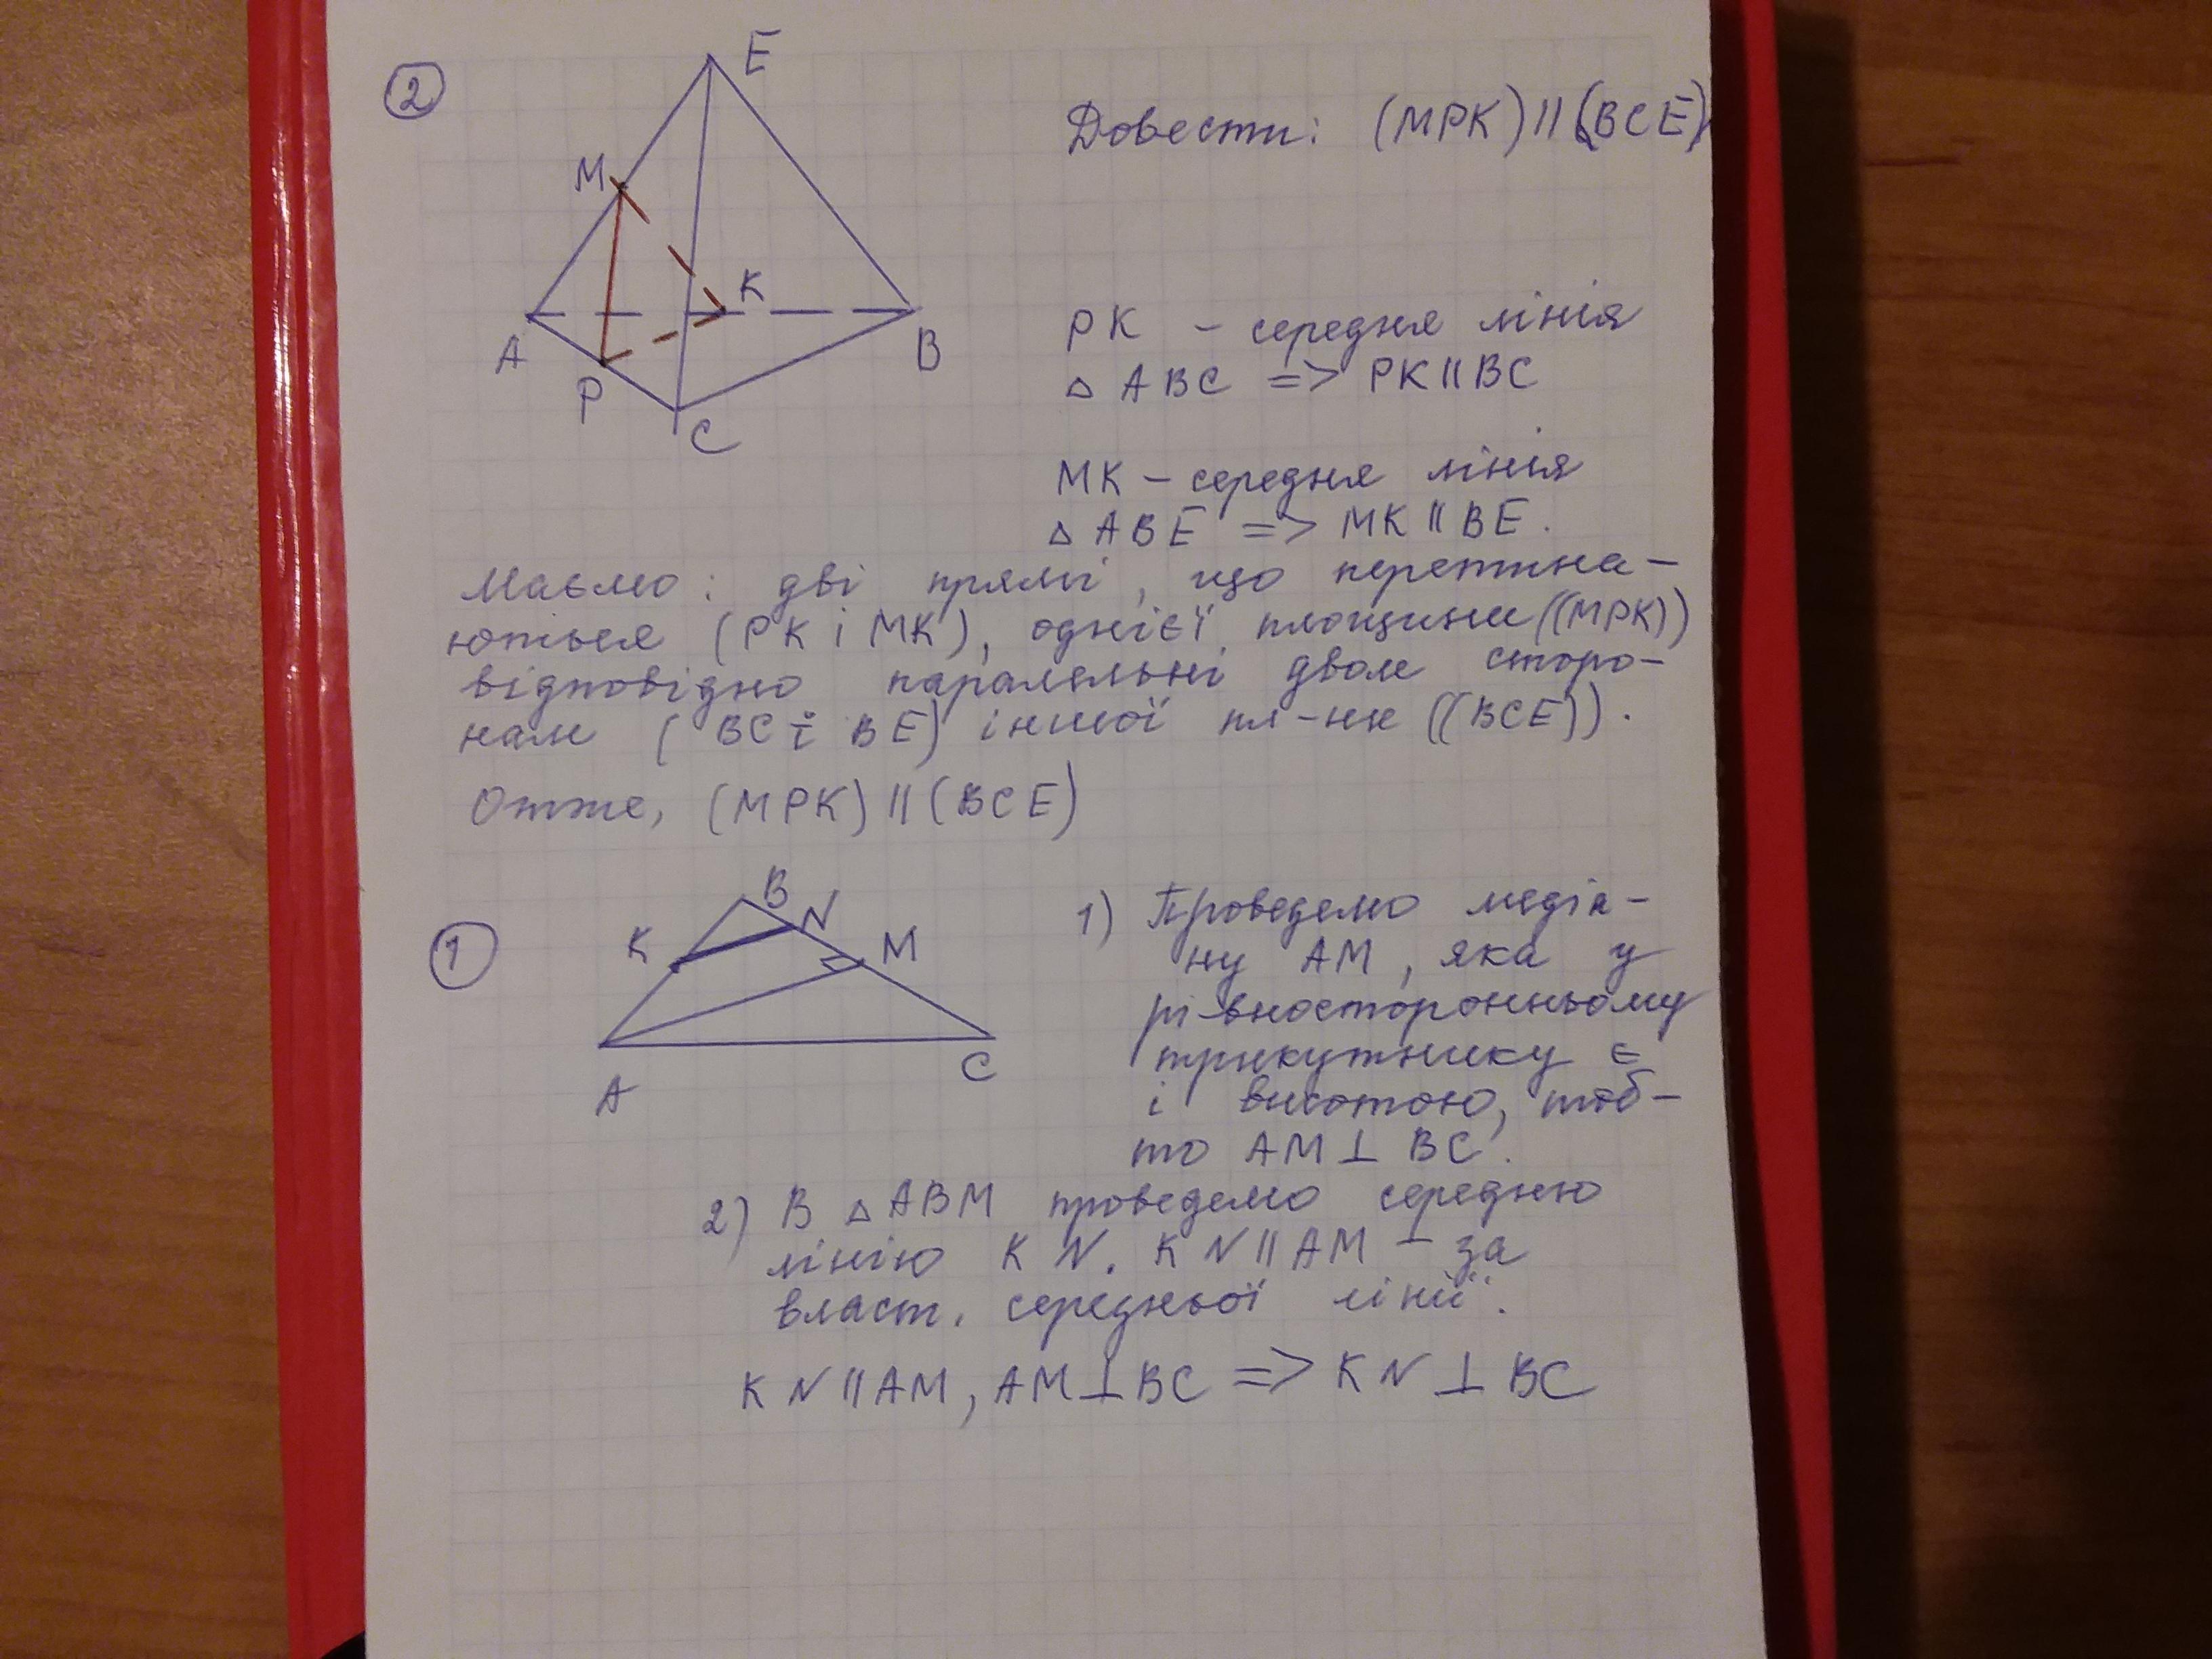 2
E
M
K
A
B
P
C
Довести: (MPK) || (BCE)
PK - середня лінія
△ ABC => PK || BC
MK - середня лінія
△ ABE => MK || BE.
Маємо: дві прямі, що перетина-
ються (PK і MK), однієї площини ((MPK))
відповідно паралельні двом сторо-
нам ( BC і BE) іншої пл-ни ((BCE)).
Отже, (MPK) || (BCE)
1
B
N
K
M
A
C
1) Проведемо медіа-
ну AM, яка у
рівносторонньому
трикутнику є
і висотою, тоб-
то AM ⊥ BC.
2) В △ ABM проведемо середню
лінію KN. KN || AM - за
власт. середньої лінії.
KN || AM, AM ⊥ BC => KN ⊥ BC